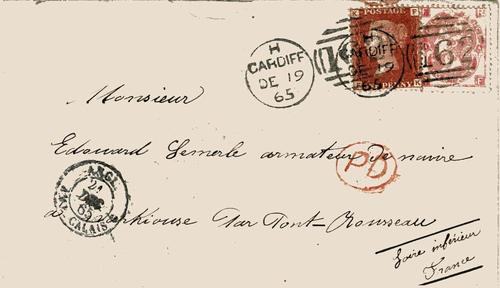 POSTAGE
PENNY
H
CARDIFF
DE 19
65
H
CARDIFF
DE 19
65
162
Monsieur
Edouard Lemerle armateur de navire
PD
ANGL.
AMB. CALAIS
65
a par Pont-Rousseau
Loire inférieur
France